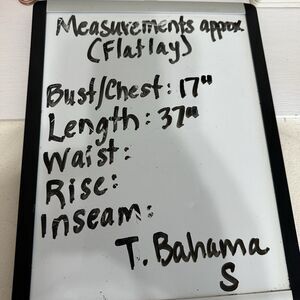 Measurements approx
(Flatlay)
Bust/Chest: 17"
Length: 37"
Waist:
Rise:
Inseam:
T. Bahama
S